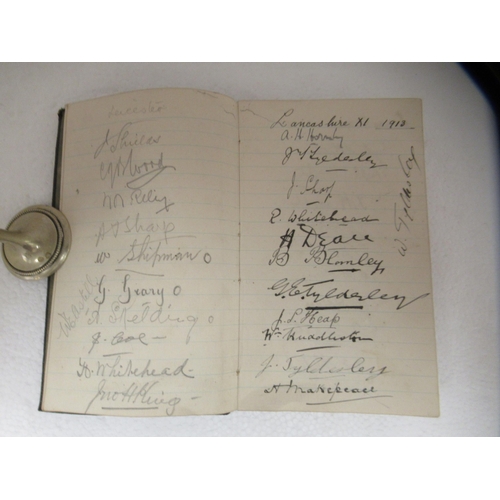 Leicester
C J B Wood
A T Sharp
Wm Shipman
G. Geary.
A. E. Skelding
J. Coe
H. Whitehead
Jno H King
Lancashire XI 1910
A. H. Hornby
Jn. Tyldesley
J. Sharp
R. Whitehead
H Dean
B Blomley
J. S. Heap
Wm Huddleston
J. Tyldesley
H Makepeace
W. Tyldesley